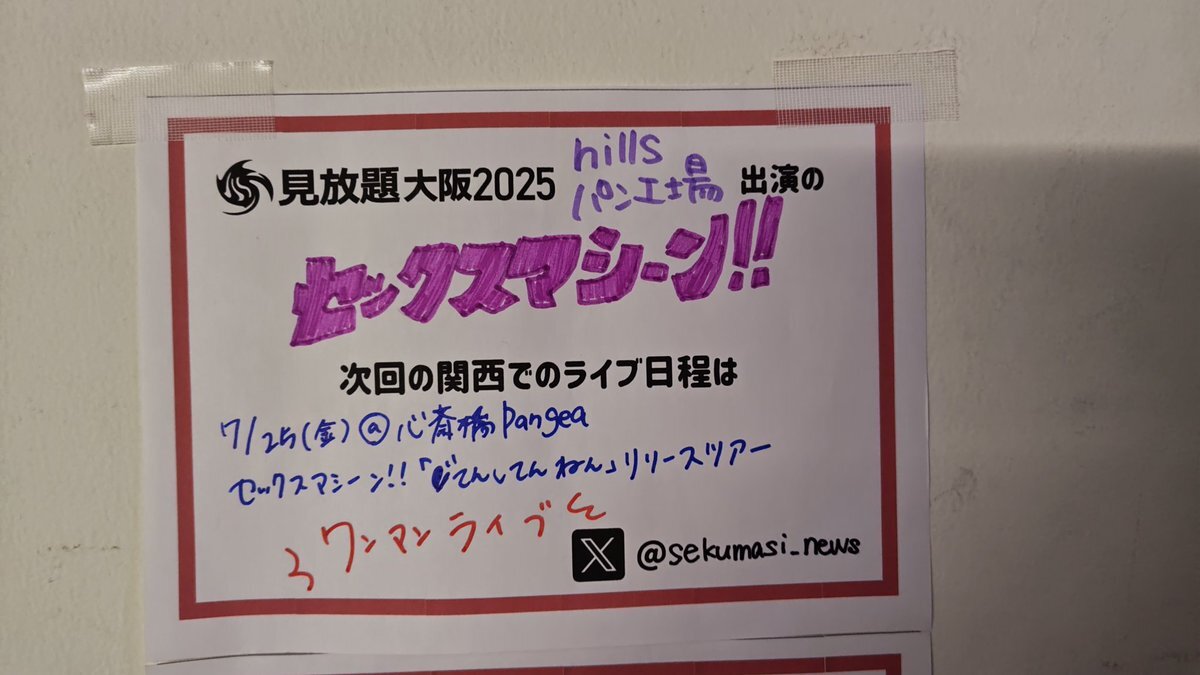 見放題大阪2025 hills パン工場 出演の
セックスマシーン!!
次回の関西でのライブ日程は
7/25(金)@心斎橋Pangea
セックスマシーン!!「じてんしてんねん」リリースツアー
ワンマンライブ
X @sekumasi_news